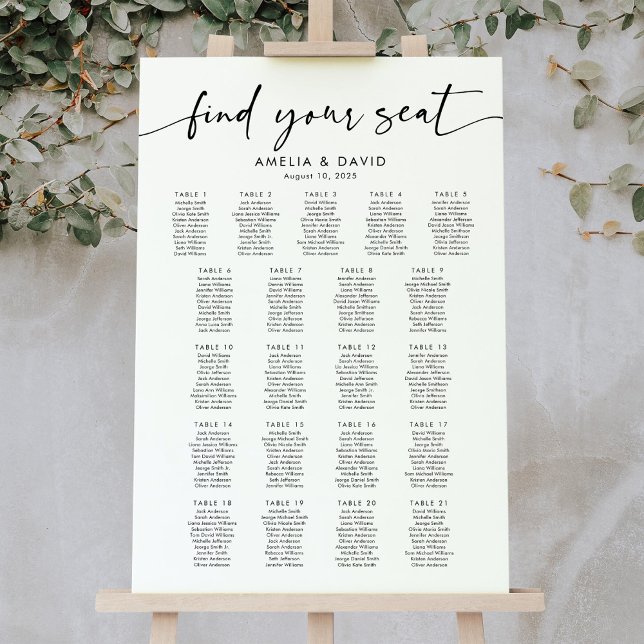 find your seat
AMELIA & DAVID
August 10, 2025
TABLE 1
Michelle Smith
George Smith
Olivia Kate Smith
Kristen Anderson
Oliver Anderson
Jack Anderson
Sarah Anderson
Liana Williams
Seth Williams
David Williams
TABLE 2
Sarah Anderson
Liana Jessica Williams
Sebastian Williams
David Williams
Michelle Smith
George Smith Jr.
Jennifer Smith
Kristen Anderson
Oliver Anderson
TABLE 3
David Williams
Michelle Smith
George Smith
Olivia Maria Smith
Jennifer Smith
Kristen Anderson
Oliver Anderson
Liana Williams
Sam Michael Williams
Kristen Anderson
Oliver Anderson
TABLE 4
Jack Anderson
Sarah Anderson
Liana Williams
Kristen Anderson
Oliver Anderson
Alexander Williams
Michelle Smith
George Daniel Smith
Olivia Kate Smith
TABLE 5
Sarah Anderson
Liana Williams
Alexander Jefferson
David Jason Williams
Michelle Smith
George Smithson
Olivia Jefferson
Kristen Anderson
Oliver Anderson
TABLE 6
Sarah Anderson
Liana Williams
Jennifer Williams
Kristen Anderson
Oliver Anderson
David Williams
Michelle Smith
George Jefferson
Anna Luisa Smith
Jack Anderson
TABLE 7
Liana Williams
Dennis Williams
David Williams
Michelle Smith
TABLE 8
Jennifer Anderson
Sarah Anderson
Liana Williams
Alexander Jefferson
David Jason Williams
Michelle Smithson
George Smith
Olivia Jefferson
Kristen Anderson
Oliver Anderson
TABLE 9
Michelle Smith
George Michael Smith
Olivia Nicole Smith
Kristen Anderson
Oliver Anderson
Jack Anderson
Sarah Anderson
Rebecca Williams
Seth Jefferson
Jennifer Williams
TABLE 10
David Williams
Michelle Smith
George Smith
Olivia Jefferson
Jack Anderson
Sarah Anderson
Liana Ann Williams
Maksimilian Williams
Kristen Anderson
Oliver Anderson
TABLE 11
Jack Anderson
Sarah Anderson
Liana Williams
Sebastian Williams
Kristen Anderson
Oliver Anderson
Alexander Williams
Michelle Smith
George Daniel Smith
Olivia Kate Smith
TABLE 12
Jack Anderson
Sarah Anderson
Sebastian Williams
David Jefferson
Michelle Ann Smith
George Smith Jr.
Jennifer Smith
Kristen Anderson
Oliver Anderson
TABLE 13
Jennifer Anderson
Sarah Anderson
Liana Williams
Alexander Jefferson
David Jason Williams
Michelle Smithson
George Smith
Olivia Jefferson
Kristen Anderson
Oliver Anderson
TABLE 14
Jack Anderson
Sarah Anderson
Liana Jessica Williams
Sebastian Williams
Tom David Williams
Michelle Jefferson
George Smith Jr.
Jennifer Smith
Kristen Anderson
Oliver Anderson
TABLE 15
Michelle Smith
George Michael Smith
Olivia Nicole Smith
Kristen Anderson
Oliver Anderson
Jack Anderson
Sarah Anderson
Rebecca Williams
Seth Jefferson
Jennifer Williams
TABLE 16
Jack Anderson
Sarah Anderson
Liana Williams
Sebastian Williams
Kristen Anderson
Oliver Anderson
Alexander Williams
Michelle Smith
George Daniel Smith
Olivia Kate Smith
TABLE 17
David Williams
Michelle Smith
George Smith
Olivia Maria Smith
Jennifer Smith
Jack Anderson
Sarah Anderson
Liana Williams
Sam Michael Williams
Kristen Anderson
Oliver Anderson
TABLE 18
Jack Anderson
Sarah Anderson
Liana Jessica Williams
Sebastian Williams
Tom David Williams
Michelle Jefferson
George Smith Jr.
Jennifer Smith
Kristen Anderson
Oliver Anderson
TABLE 19
Michelle Smith
George Michael Smith
Olivia Nicole Smith
Kristen Anderson
Oliver Anderson
Jack Anderson
Sarah Anderson
Rebecca Williams
Seth Jefferson
Jennifer Williams
TABLE 20
Jack Anderson
Sarah Anderson
Liana Williams
Kristen Anderson
Oliver Anderson
Alexander Williams
Michelle Smith
George Daniel Smith
Olivia Kate Smith
TABLE 21
David Williams
Michelle Smith
George Smith
Olivia Maria Smith
Jennifer Smith
Jack Anderson
Sarah Anderson
Liana Williams
Sam Michael Williams
Kristen Anderson
Oliver Anderson